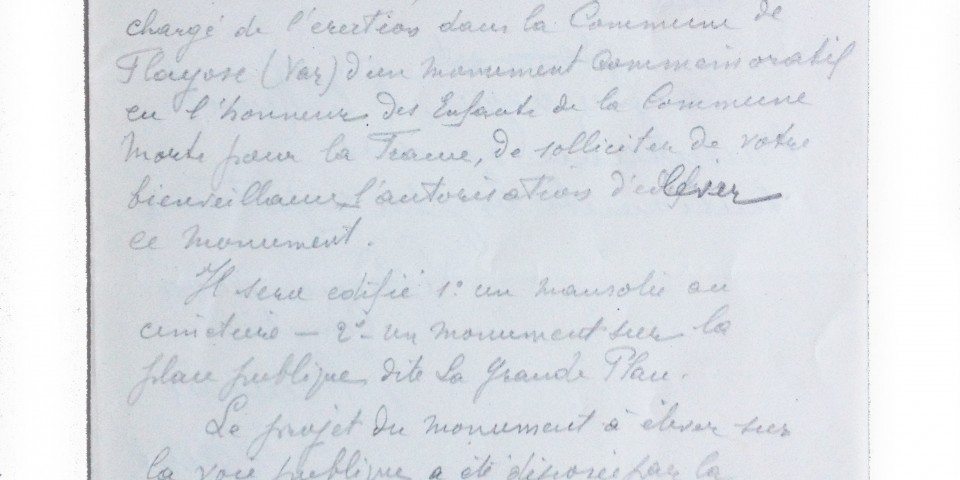 chargé de l'érection dans la Commune de
Flayosc (Var) d'un monument commémoratif
en l'honneur des Enfants de la Commune
Morts pour la France, de solliciter de votre
bienveillance l'autorisation d'élever
ce monument.
Il sera edifié 1° un mausolée au
cimetière — 2° un monument sur la
place publique dite La Grande Place.
Le projet du monument à élever sur
la voie publique a été par la